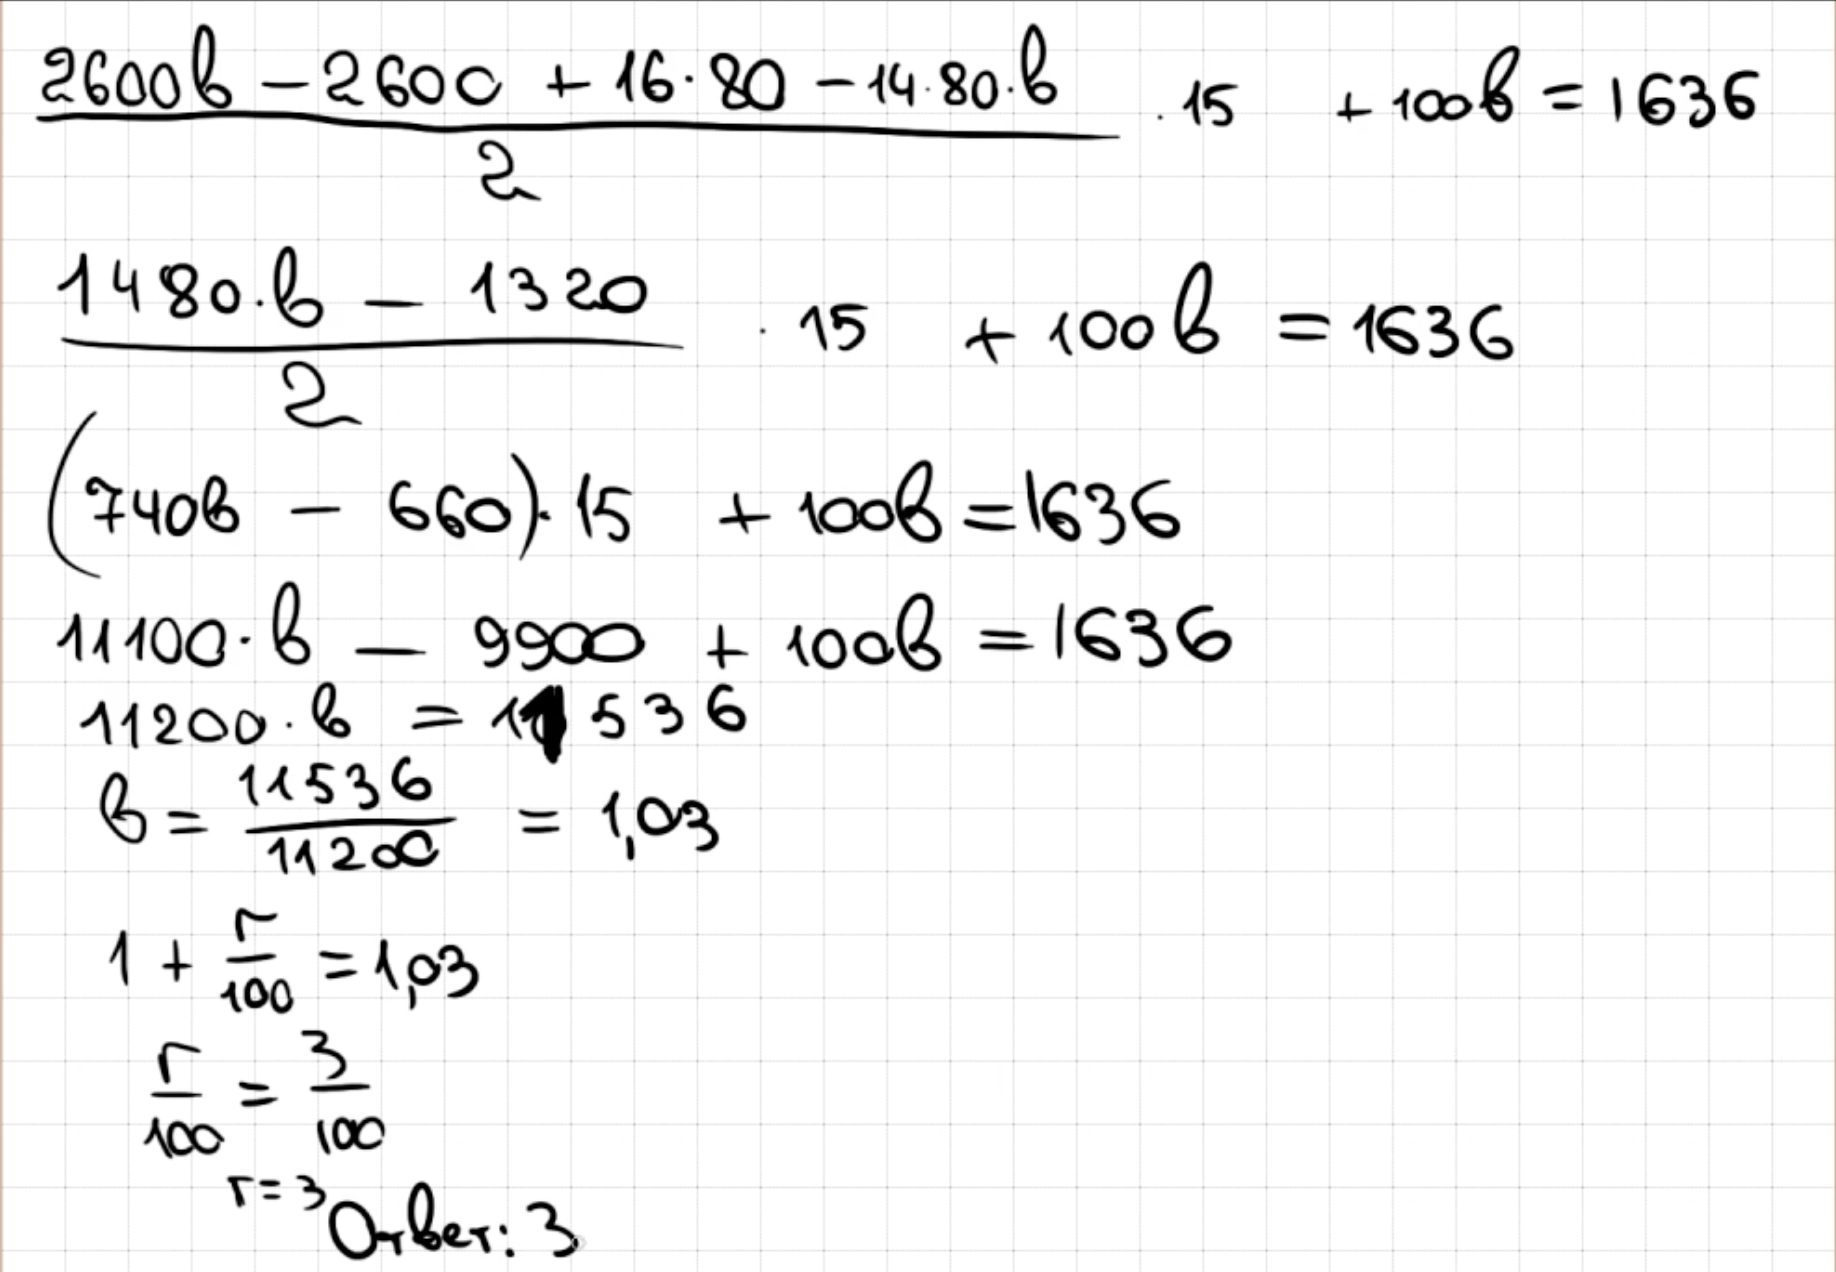 (2600в - 2600 + 16·80 - 14·80·в)/2 · 15 + 100в = 1636
(1480·в - 1320)/2 · 15 + 100в = 1636
(740в - 660)·15 + 100в = 1636
11100·в - 9900 + 100в = 1636
11200·в = 11536
в = 11536/11200 = 1,03
1 + r/100 = 1,03
r/100 = 3/100
r = 3
Ответ: 3